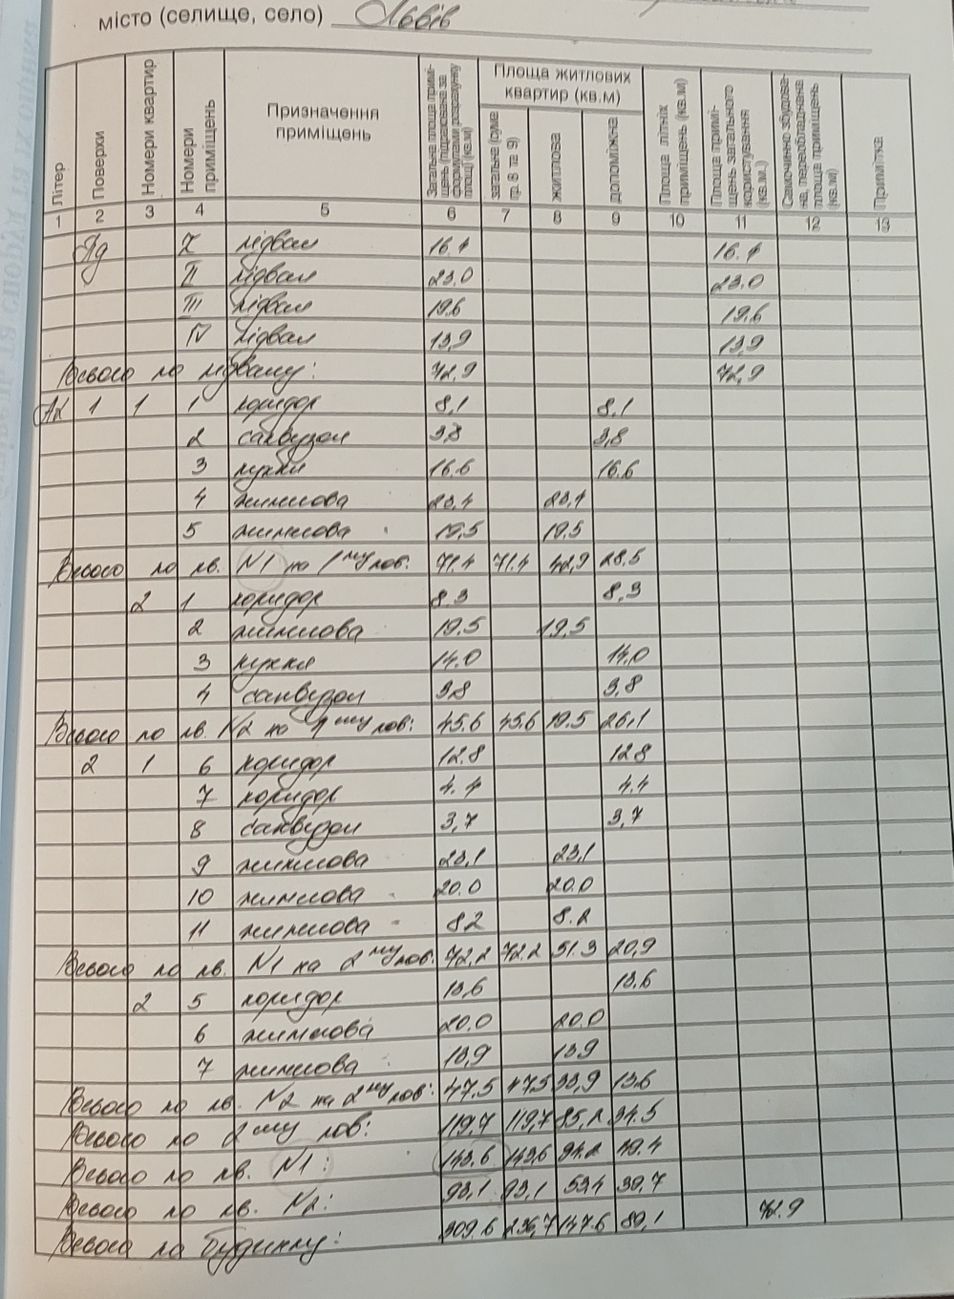 місто (селище, село) Львів
Літер Поверхи Номери квартир Номери приміщень Призначення приміщень Загальна площа приміщень (підрахована за формулами розрахунку площі) (кв.м) Площа житлових квартир (кв.м) загальна (сума гр. 8 та 9) житлова допоміжна Площа літніх приміщень (кв.м) Площа приміщень загального користування (кв.м.) Самочинно збудована, переобладнана площа приміщень (кв.м) Примітка
1 2 3 4 5 6 7 8 9 10 11 12 13
Пд I підвал 16.4 16.4
II підвал 23.0 23.0
III підвал 19.6 19.6
IV підвал 13,9 13,9
Всього по підвалу: 72,9 72,9
1 1 1 коридор 8,1 8,1
2 санвузол 3,8 3,8
3 кухня 16.6 16.6
4 житлова 23,4 23,4
5 житлова 19,5 19,5
Всього по кв. N1 на 1му пов: 71.4 71.4 42,9 28,5
2 1 коридор 8.3 8,3
2 житлова 19.5 19,5
3 кухня 14.0 14,0
4 санвузол 3,8 3,8
Всього по кв. N2 на 1му пов: 45.6 45.6 19.5 26,1
2 1 6 коридор 12.8 12.8
7 коридор 4.4 4.4
8 санвузол 3,7 3,7
9 житлова 23,1 23,1
10 житлова 20.0 20.0
11 житлова 8.2 8.2
Всього по кв. N1 на 2му пов: 72,2 72.2 51.3 20,9
2 5 коридор 13,6 13.6
6 житлова 20.0 20.0
7 житлова 13,9 13,9
Всього по кв. N2 на 2му пов: 47,5 47,5 33,9 13,6
Всього по 2му пов: 119,7 119,7 85,2 34.5
Всього по кв. N1: 143,6 143,6 94.2 49.4
Всього по кв. N2: 93,1 93,1 53,4 39,7
Всього по будинку: 309.6 236,7 147.6 89,1 72.9